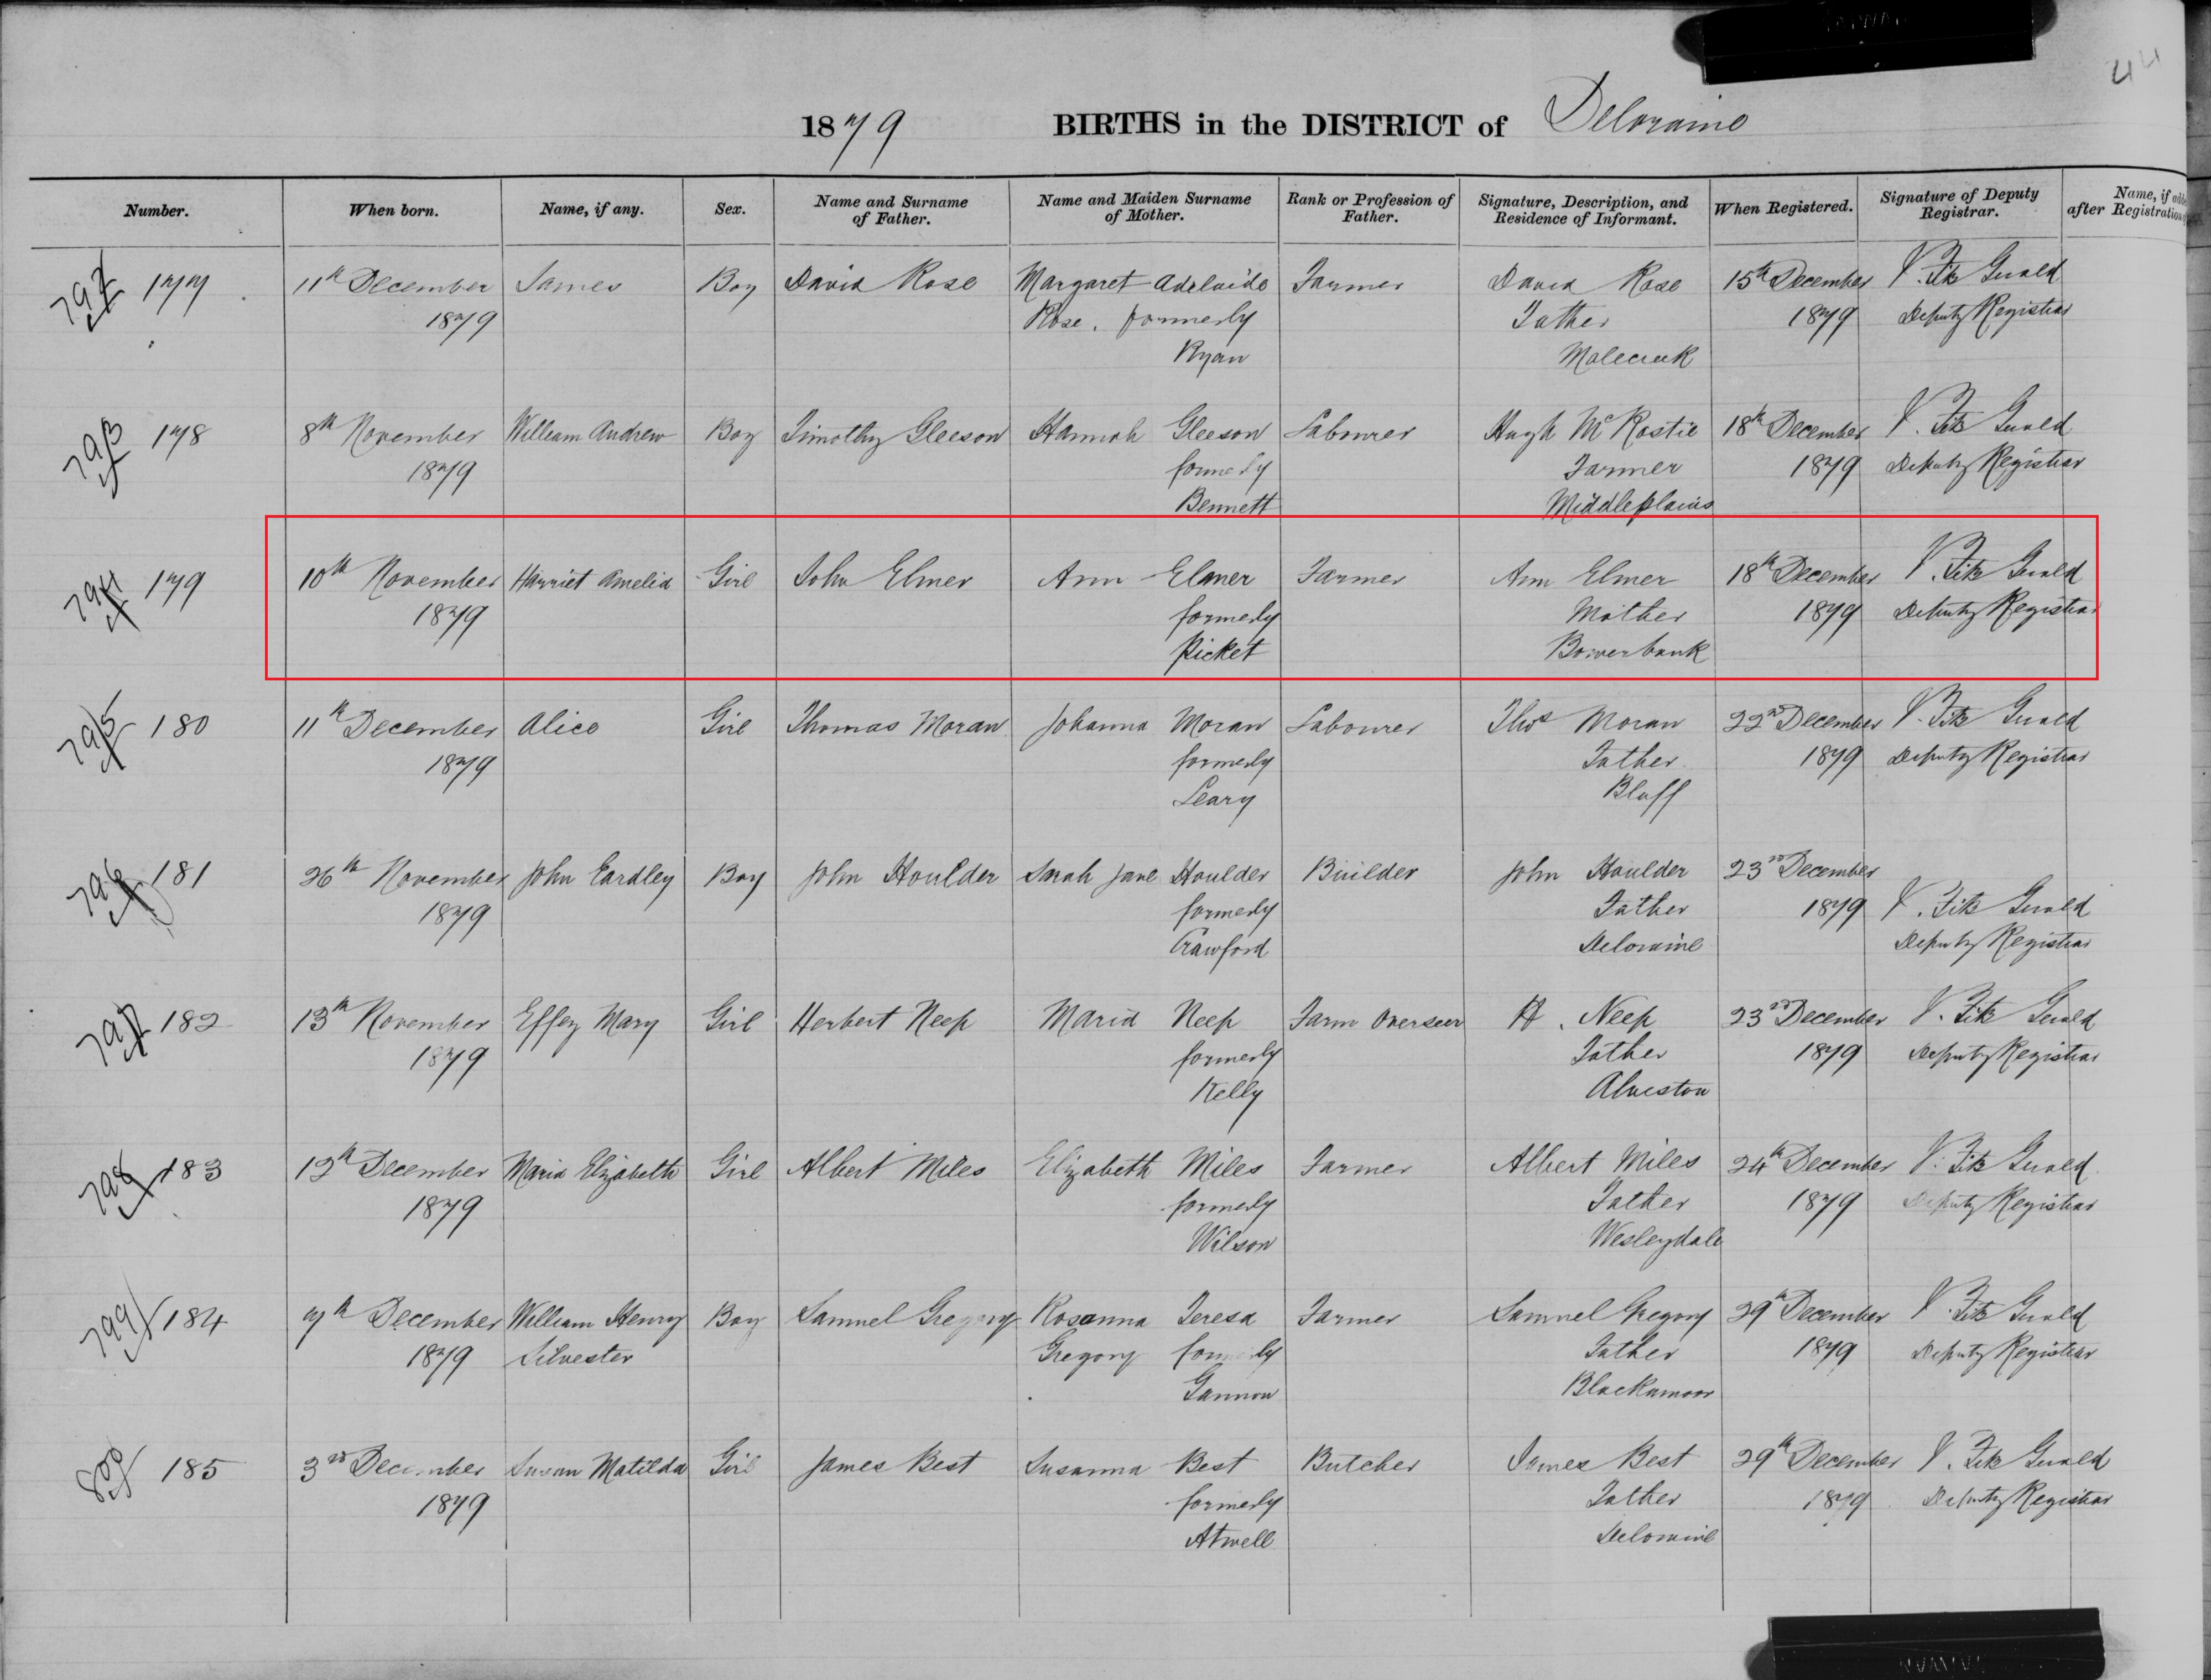 44
1879 BIRTHS in the DISTRICT of Deloraine
Number. When born. Name, if any. Sex. Name and Surname of Father. Name and Maiden Surname of Mother. Rank or Profession of Father. Signature, Description, and Residence of Informant. When Registered. Signature of Deputy Registrar. Name, if after Registration
792 177 11th December James Boy David Rose Margaret Adelaide Farmer David Rose 15th December V. Fitz Gerald
1879 Rose, formerly Father 1879 Deputy Registrar
Ryan Molecreek
793 178 8th November William Andrew Boy Timothy Gleeson Hannah Gleeson Labourer Hugh McRostie 18th December V. Fitz Gerald
1879 formerly Farmer 1879 Deputy Registrar
Bennett Middleplains
794 179 10th November Harriet Amelia Girl John Elmer Ann Elmer Farmer Ann Elmer 18th December V. Fitz Gerald
1879 formerly Mother 1879 Deputy Registrar
Picket Bowerbank
795 180 11th December Alice Girl Thomas Moran Johanna Moran Labourer Thos Moran 22nd December V. Fitz Gerald
1879 formerly Father 1879 Deputy Registrar
Leary Bluff
796 181 26th November John Eardley Boy John Houlder Sarah Jane Houlder Builder John Houlder 23rd December
1879 formerly Father 1879 V. Fitz Gerald
Crawford Deloraine Deputy Registrar
797 182 13th November Effey Mary Girl Herbert Neep Maria Neep Farm Overseer H. Neep 23rd December V. Fitz Gerald
1879 formerly Father 1879 Deputy Registrar
Kelly Alveston
798 183 12th December Maria Elizabeth Girl Albert Miles Elizabeth Miles Farmer Albert Miles 24th December V. Fitz Gerald
1879 formerly Father 1879 Deputy Registrar
Wilson Wesleydale
799 184 7th December William Henry Boy Samuel Gregory Rosanna Teresa Farmer Samuel Gregory 29th December V. Fitz Gerald
1879 Silvester Gregory formerly Father 1879 Deputy Registrar
Gannon Blackamoor
800 185 3rd December Susan Matilda Girl James Best Susanna Best Butcher James Best 29th December V. Fitz Gerald
1879 formerly Father 1879 Deputy Registrar
Atwell Deloraine